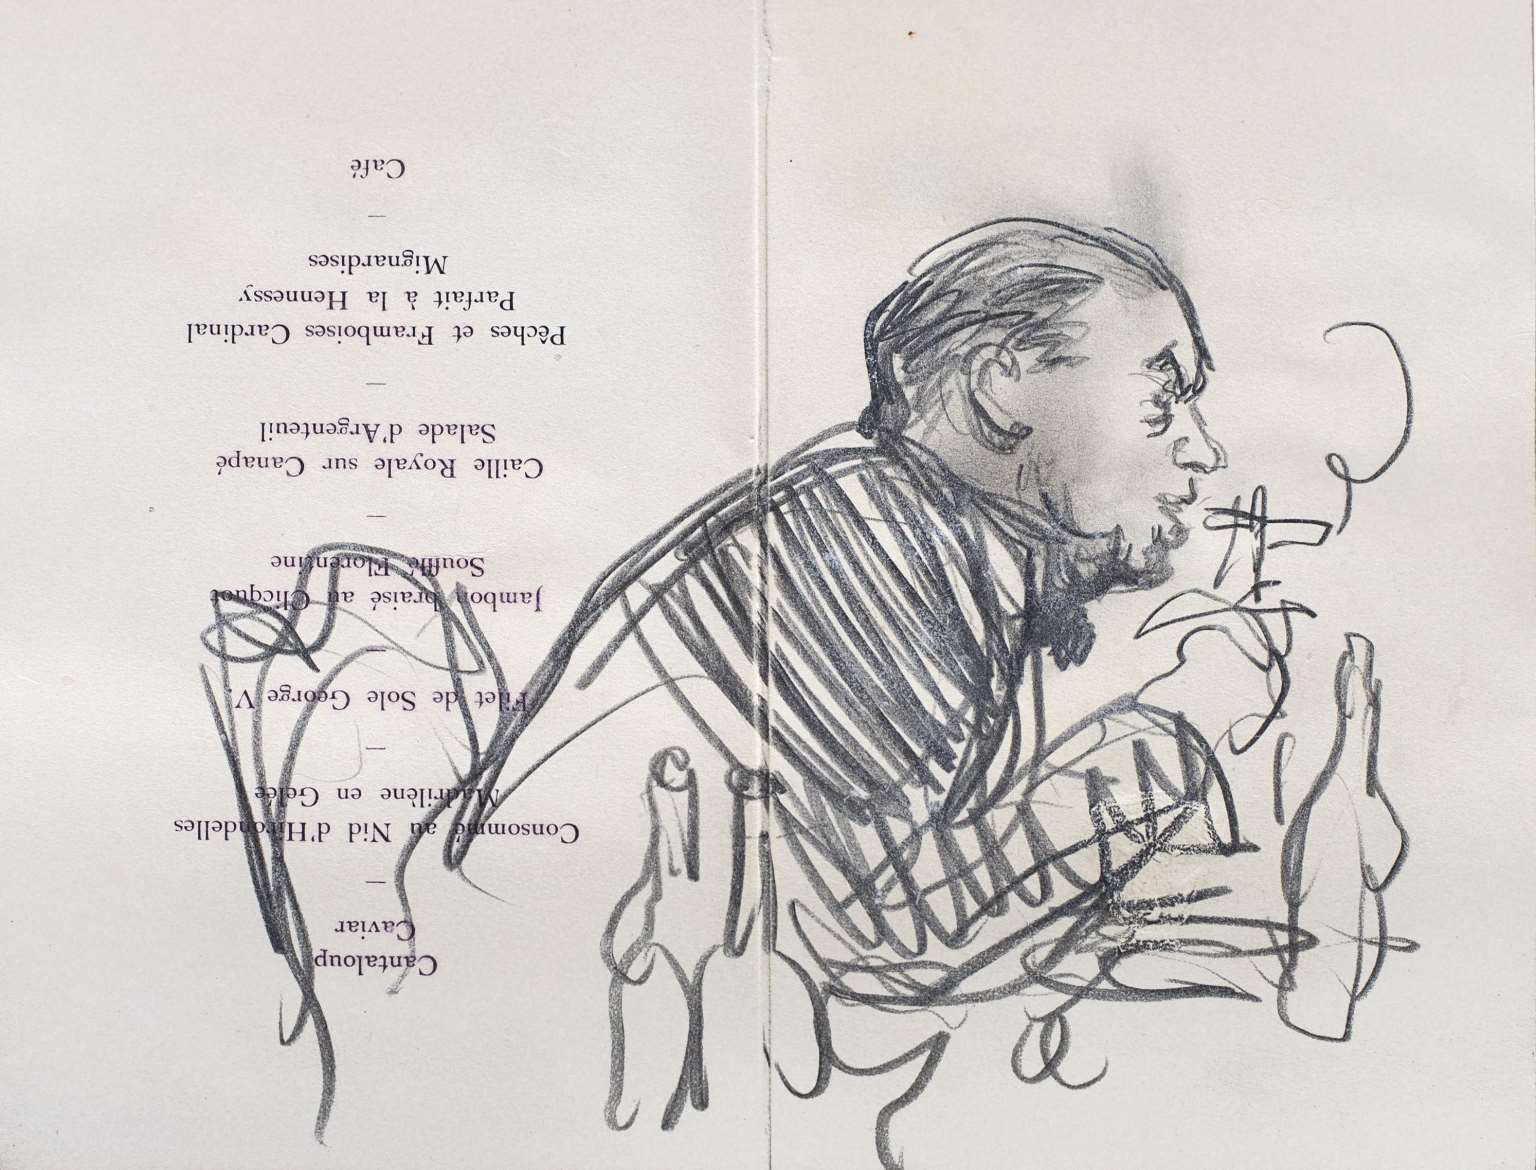 Cantaloup
Caviar
—
Consommé au Nid d'Hirondelles
Madrilène en Gelée
—
Filet de Sole George V.
—
Jambon braisé au Clicquot
Soufflé Florentine
—
Caille Royale sur Canapé
Salade d'Argenteuil
—
Pêches et Framboises Cardinal
Parfait à la Hennessy
Mignardises
—
Café